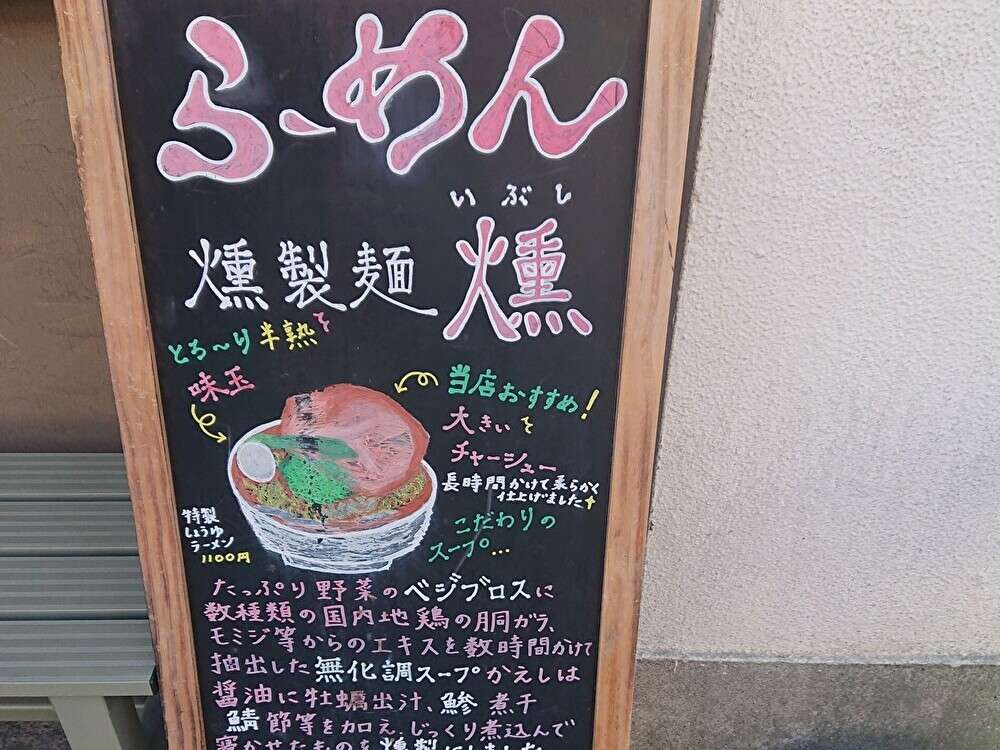 らーめん
いぶし
燻製麺 燻
とろ〜り半熟そ
味玉
当店おすすめ!
大きいそ
チャーシュー
長時間かけて柔らかく
仕上げました
特製
しょうゆ
ラーメン
1100円
こだわりの
スープ…
たっぷり野菜のベジブロスに
数種類の国内地鶏の胴ガラ、
モミジ等からのエキスを数時間かけて
抽出した無化調スープかえしは
醤油に牡蠣出汁、鯵煮干
鯖節等を加え、じっくり煮込んで
寝かせたものを燻製にしました